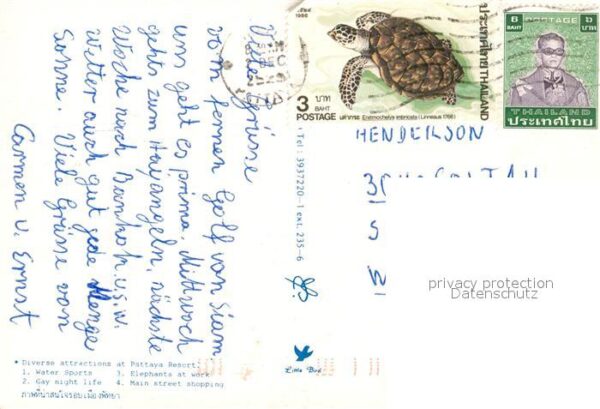 Viele Grüsse
vom fernen Golf von Siam.
uns geht es prima. Mittwoch
gehts zum Haiangeln, nächste
Woche nach Bankok u.s.w.
Wetter auch gut jede Menge
Sonne. Viele Grüsse von
Carmen u. Ernst
1986
ประเทศไทย THAILAND
3 บาท
BAHT
POSTAGE
Eretmochelys imbricata (Linnaeus 1766)
6 POSTAGE ๖
BAHT บาท
THAILAND
ประเทศไทย
HENDERSON
Tel: 3937220-1 ext. 235-6
Little Bird
privacy protection
Datenschutz
* Diverse attractions at Pattaya Resort:
1. Water Sports 3. Elephants at work
2. Gay night life 4. Main street shopping
ภาพที่น่าสนใจรอบเมืองพัทยา